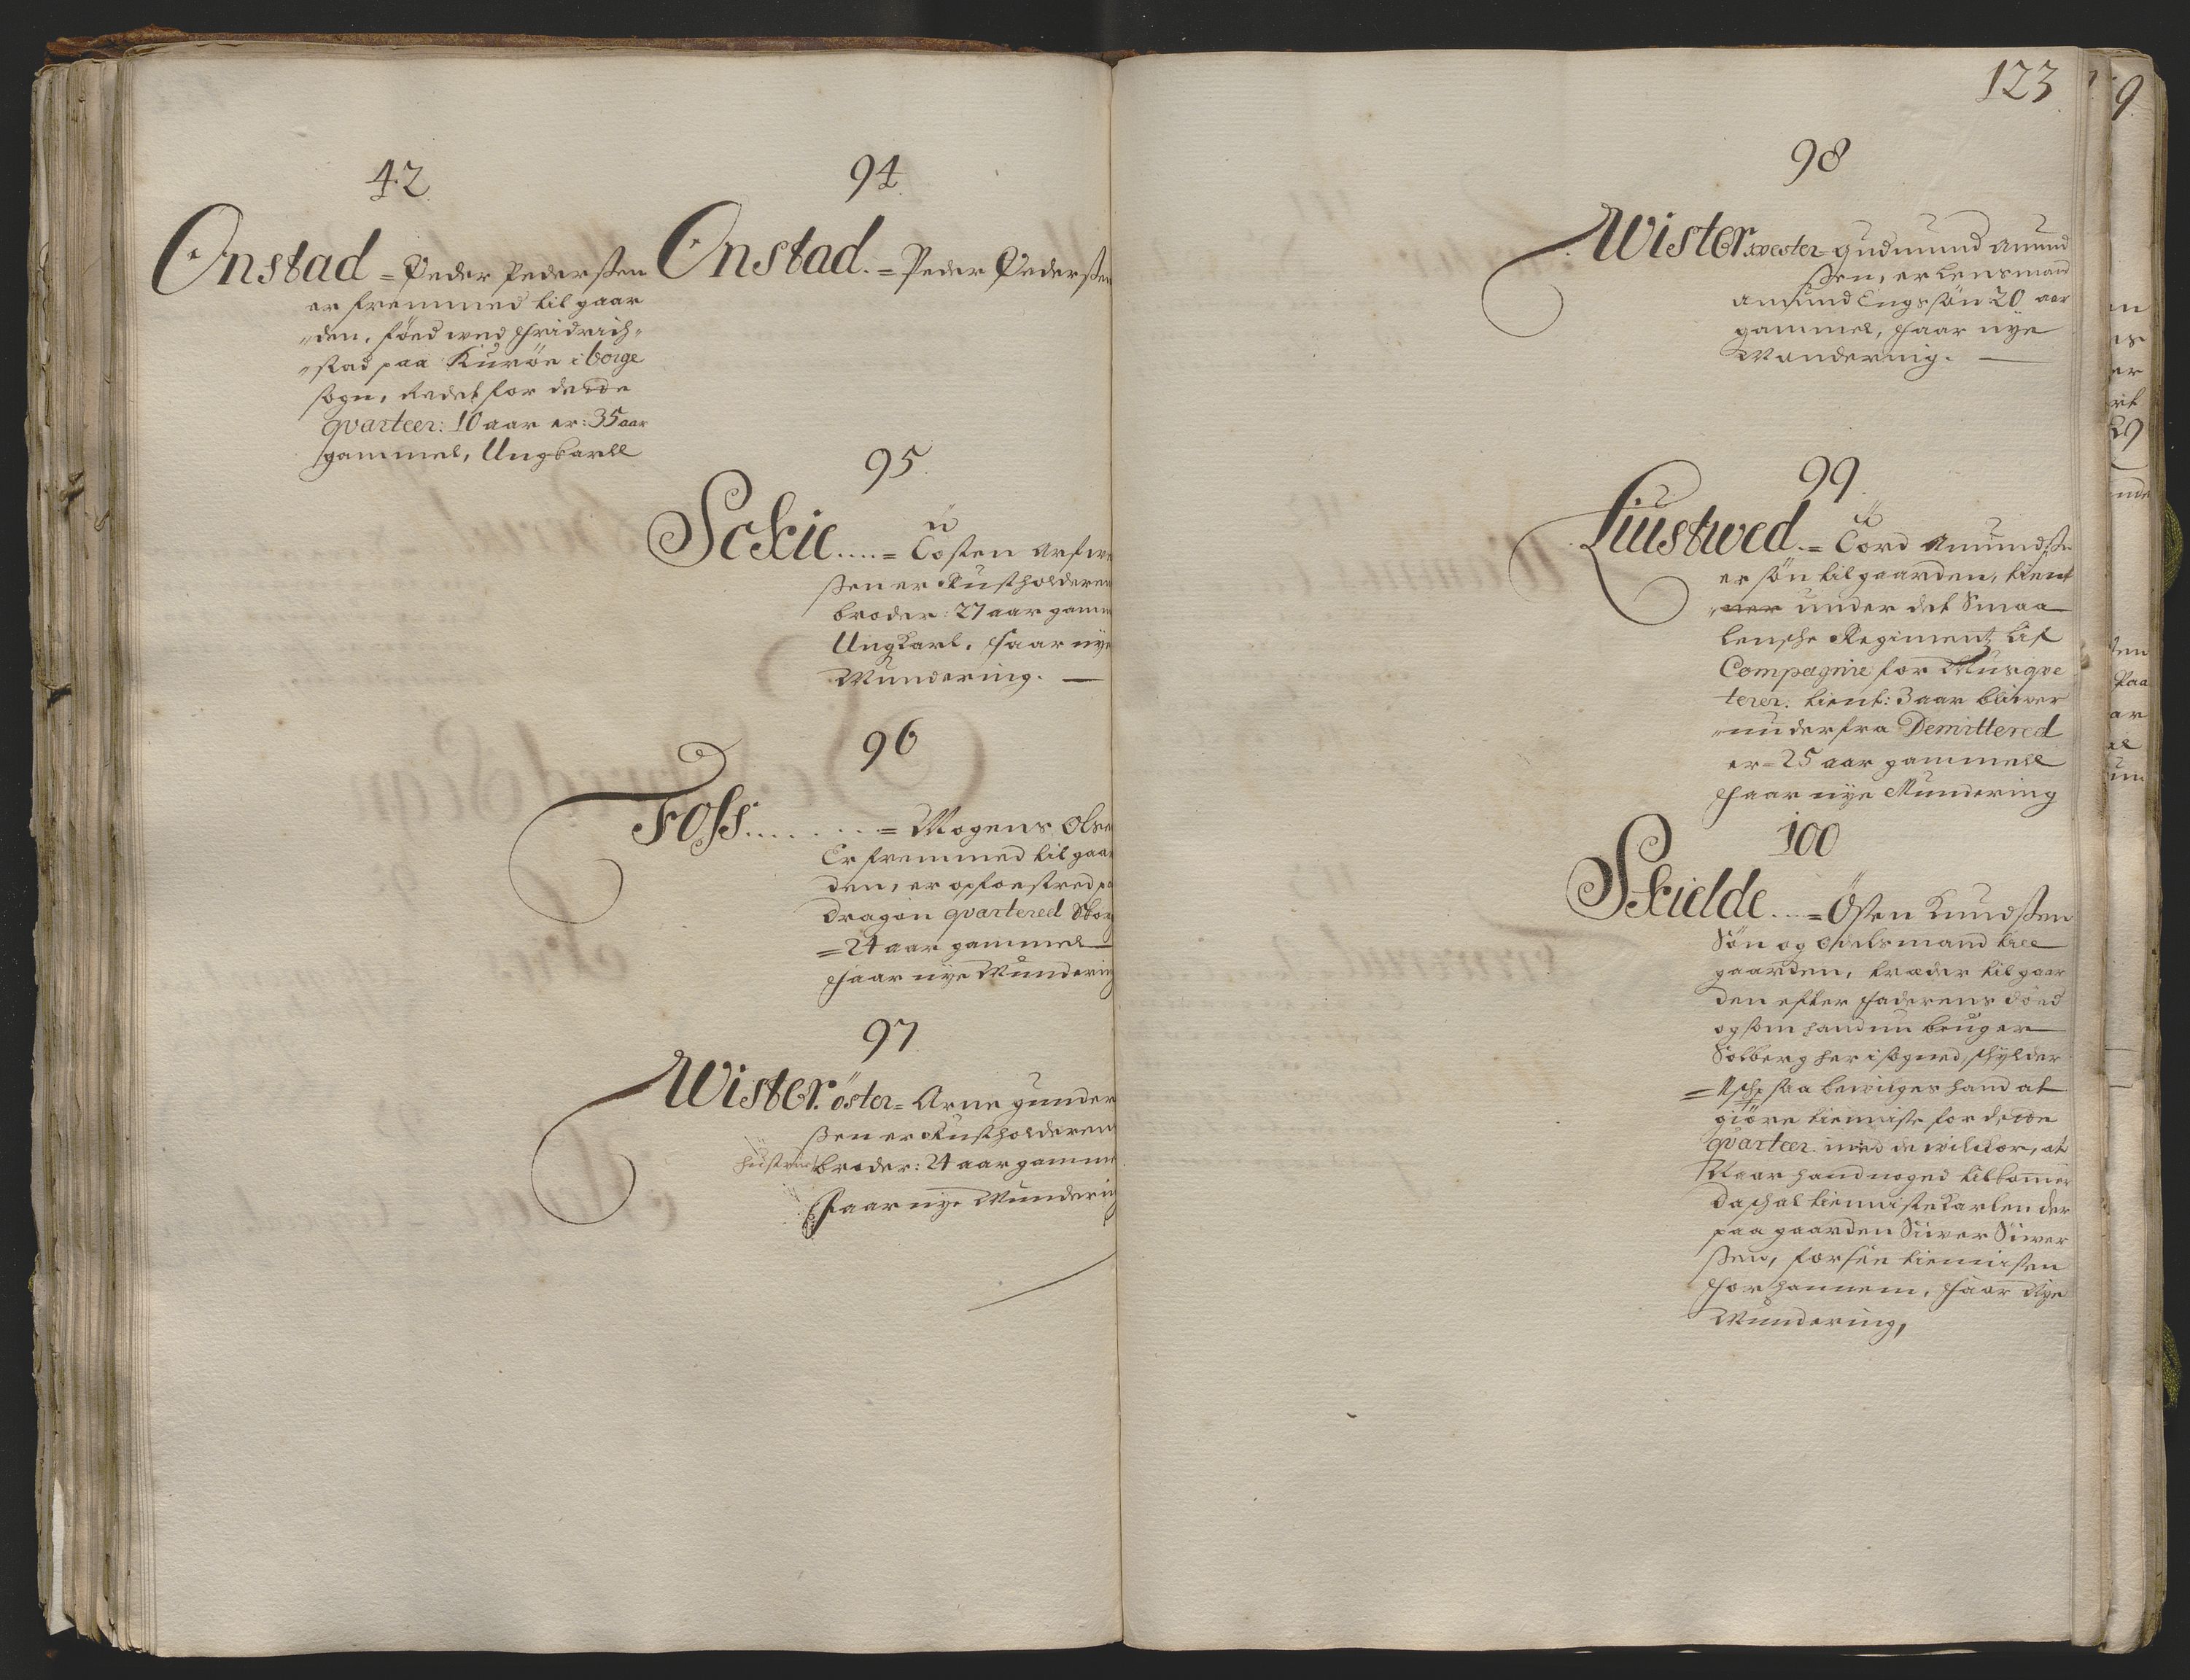 42
Onstad = Peder Pedersßen
er fremmed til gaar
"den, föed wed Fridrich"
"stad paa Kuröe i borge
sogn, Redet for dette
qvarteer: 10 aar er: 35 aar
gammel, Ungkarll
94
Onstad. = Peder Pedersßen
95
Sckie....=
Tosten Arfwe
ßen er Rustholderen
broder: 27 aar gamm
Ungkarl. faar nye
Mundering. —
96
Foss........= Mogens Olse
Er fremmed til gaar
den, er opfoestred pa
dragon qvartered
=24 aar gammel
Faar nye Mundering
97
Wister. öster = Arne gunder
ßen er Rustholderens
hustrues broder: 24 aar gamme
Faar nye Mundering
123
98
Wister. wester = gudmund amund
ßen, er Lensmand
amund Engs sön 20 aar
gammel, faar nye
Mundering. —
99
Liustwed. = Tord Amundße
er sön til gaarden, tient
"ner under det Smaa
lensche Regimentz Lif
Compagnie for Musqve
terer. tient: 3 aar bliwer
"nu derfra Demittered
er = 25 aar gammell
Faar nye Mundering
100
Skielde....= Östen Knudsßen
Sön og Odelsmand till
gaarden, træder til gaar
den efter faderens död
og som hand nu bruger
Solberg her i sogned, schylder
saa bewilges hand at
giöre tienniste for dette
qvarteer med de wilckor, at
Naar hand noged tilkommer
da schal tiennistekarlen der
paa gaarden Siwer Siwer
ßen, forsee tiennisten
for hannem, Faar Nye
Mundering,